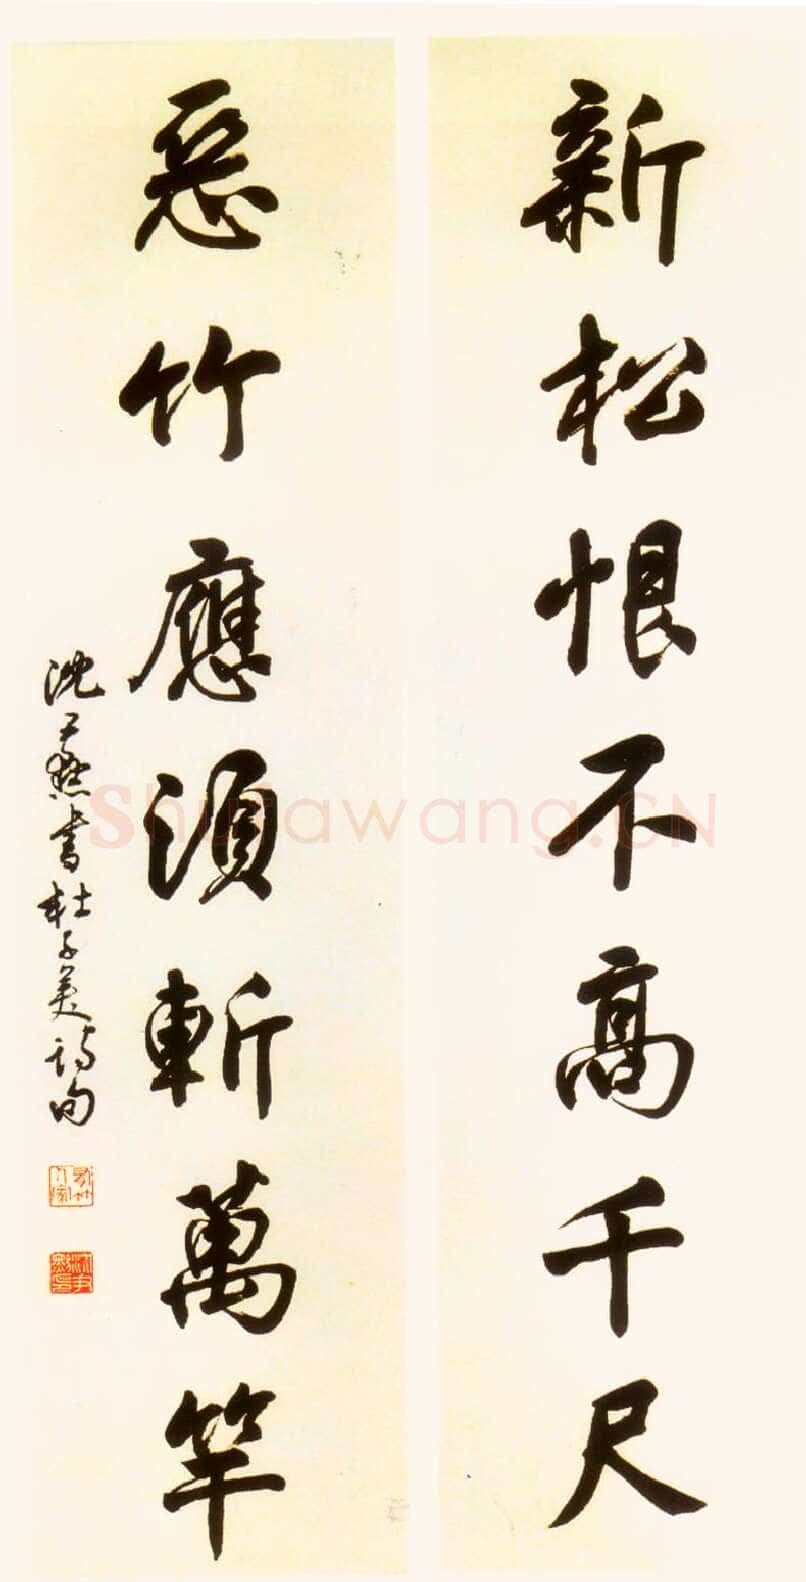 新松恨不高千尺
惡竹應須斬萬竿
沈尹默書杜子美詩句
沈尹默印
Shufawang.CN